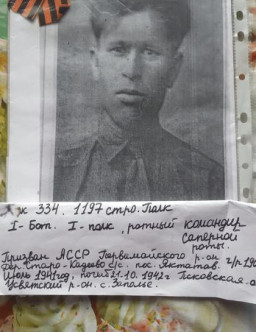 ж 334. 1197 стро. Полк
I- Бат. I- полк, ротный командир
саперной
роты.
Призван АССР Первомайского р-он г/р 190
Дер. Старо-Кадеево с/с. пос. Яктатав.
Июль 1941год, погиб 21.10.1942г Псковская. о
Усвятский р-он. с. Заполье.